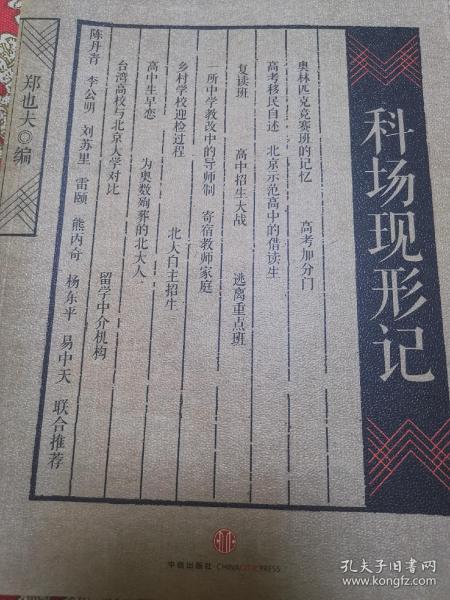 科场现形记
奥林匹克竞赛班的记忆 高考加分门
高考移民自述 北京示范高中的借读生
复读班 高中招生大战 逃离重点班
一所中学教改中的导师制 寄宿教师家庭
乡村学校迎检过程 北大自主招生
高中生早恋 为奥数殉葬的北大人
台湾高校与北京大学对比 留学中介机构
陈丹青 李公明 刘苏里 雷颐 熊丙奇 杨东平 易中天 联合推荐
郑也夫◎编
中信出版社·CHINACITICPRESS
孔夫子旧书网
kongfz.com